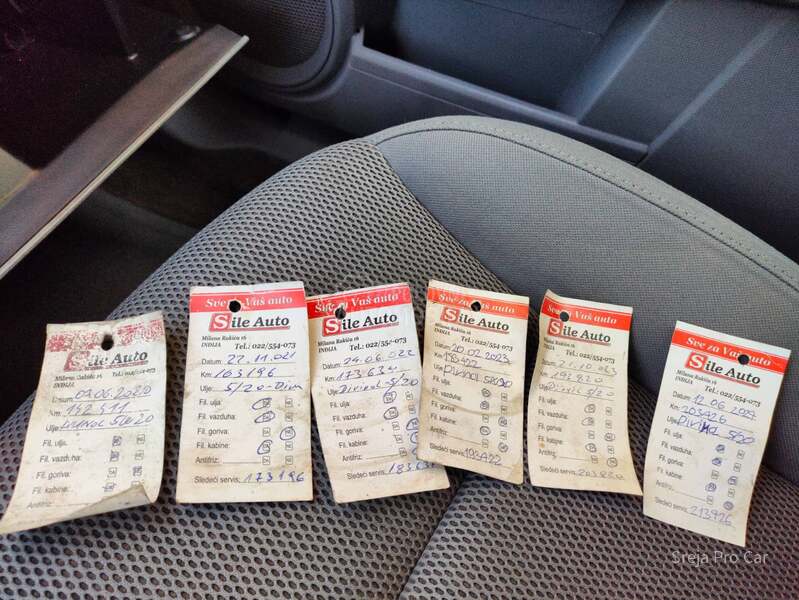 Sile Auto
Milana Rakića 16
INĐIJA
Datum:
Km: 142411
Ulje: 5W20
Fil. ulja:
Fil. vazduha:
Fil. goriva:
Fil. kabine:
Antifriz:
Sve Vaš auto
Sile Auto
Milana Rakića 16
INĐIJA Tel.: 022/554-073
Datum: 22.11.021
Km: 163196
Ulje: 5/20-Divi
Fil. ulja:
Fil. vazduha:
Fil. goriva:
Fil. kabine:
Antifriz:
Sledeći servis: 173196
Sve Vaš auto
Sile Auto
Milana Rakića 16
INĐIJA Tel.: 022/554-073
Datum: 24.06.022
Km: 173634
Ulje: Divinol 5/20
Fil. ulja:
Fil. vazduha:
Fil. goriva:
Fil. kabine:
Antifriz:
Sledeći servis: 18363
Sve za Vaš auto
Sile Auto
Milana Rakića 16
INĐIJA Tel.: 022/554-073
Datum: 20.02.2023
Km:
Ulje: Divinol 5W20
Fil. ulja:
Fil. vazduha:
Fil. goriva:
Fil. kabine:
Antifriz:
Sledeći servis: 193422
Vaš auto
Sile Auto
Milana Rakića 16
INĐIJA Tel.: 022/554-073
Datum:
Km: 193820
Ulje: Divinol 5/20
Fil. ulja:
Fil. vazduha:
Fil. goriva:
Fil. kabine:
Antifriz:
Sledeći servis: 203820
Sve za Vaš auto
Sile Auto
Milana Rakića 16
INĐIJA Tel.: 022/554-073
Datum: 12.06.2024
Km: 203426
Ulje: Divinol 5W20
Fil. ulja:
Fil. vazduha:
Fil. goriva:
Fil. kabine:
Antifriz:
Sledeći servis: 213426
Sreja Pro Car